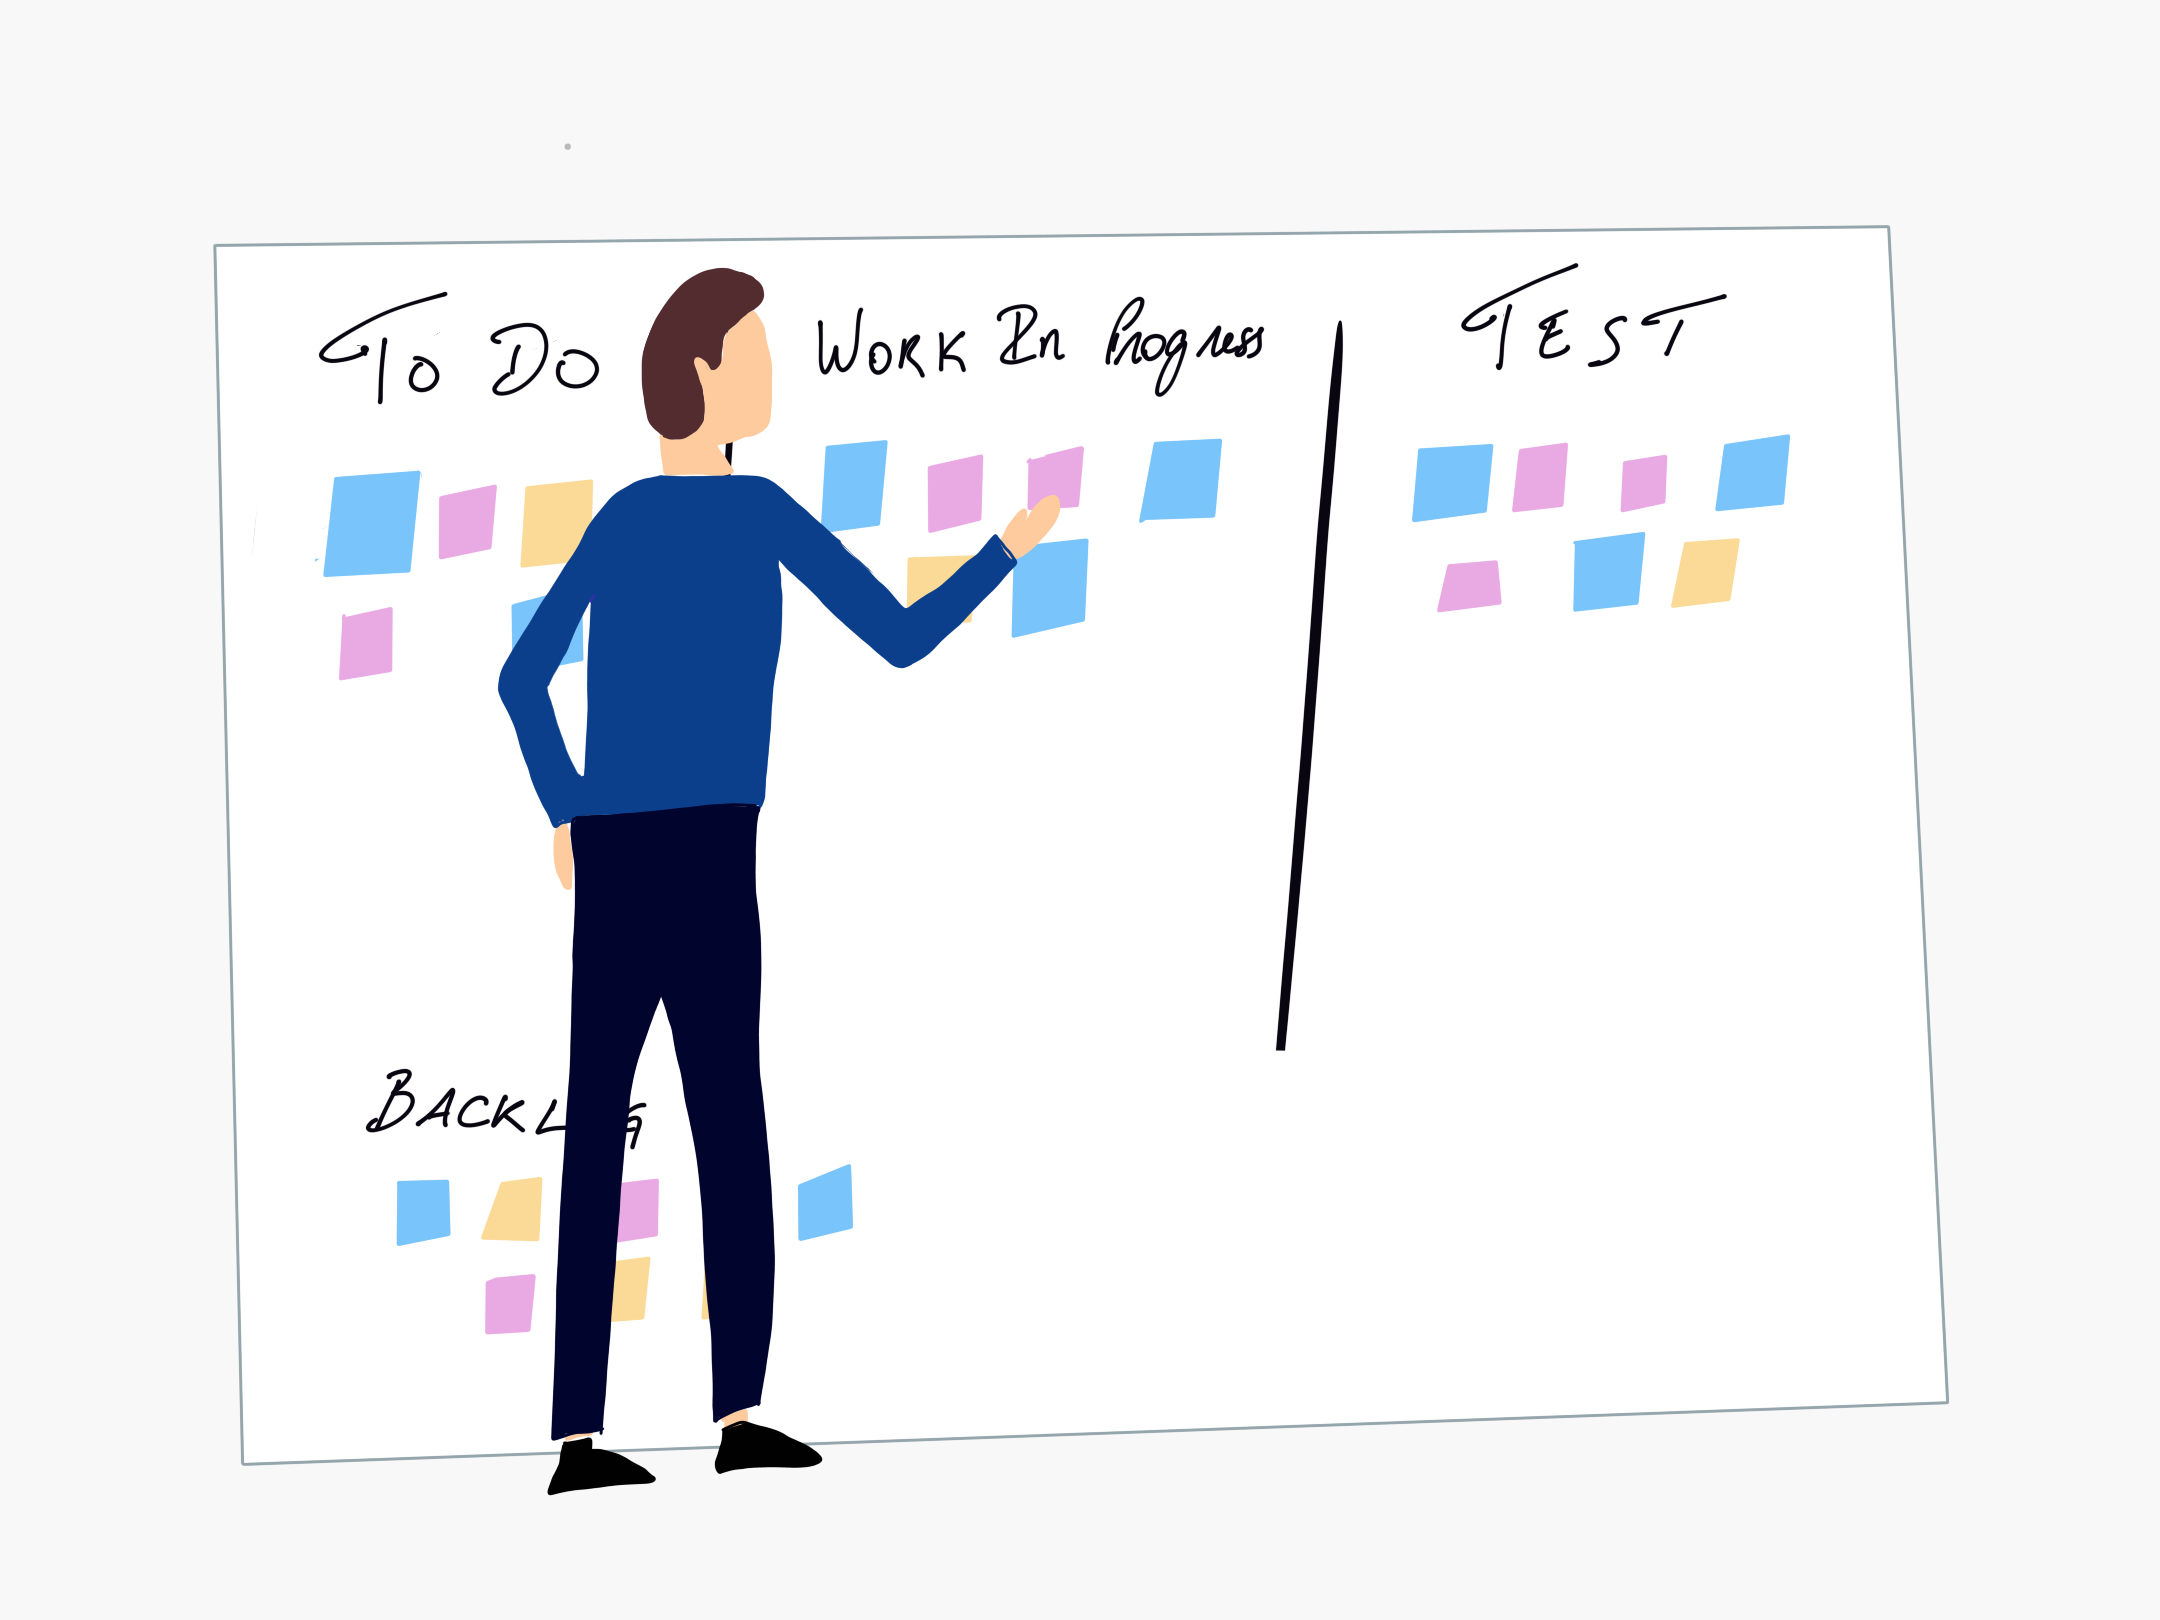 To Do
Work In Progress
TEST
BACKLOG